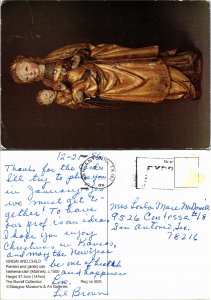 12-21-
Thanks for the card.
I'll try to phone you
in January
we must get to-
gether! To have
our prof. is an idea.
I hope you enjoy
Christmas in Kansas,
and may the New Year
be one of health
and happiness
Love,
Lil Brown
VIRGIN AND CHILD
Painted and gilded oak
Netherlandish (Malines), c.1500
Height 37.5cm (14¾in)
The Burrell Collection Reg no 50/3
© Glasgow Museums & Art Galleries
Mrs Lorla Marie McDowell
9526 Contessa #18
San Antonio Tex
78216